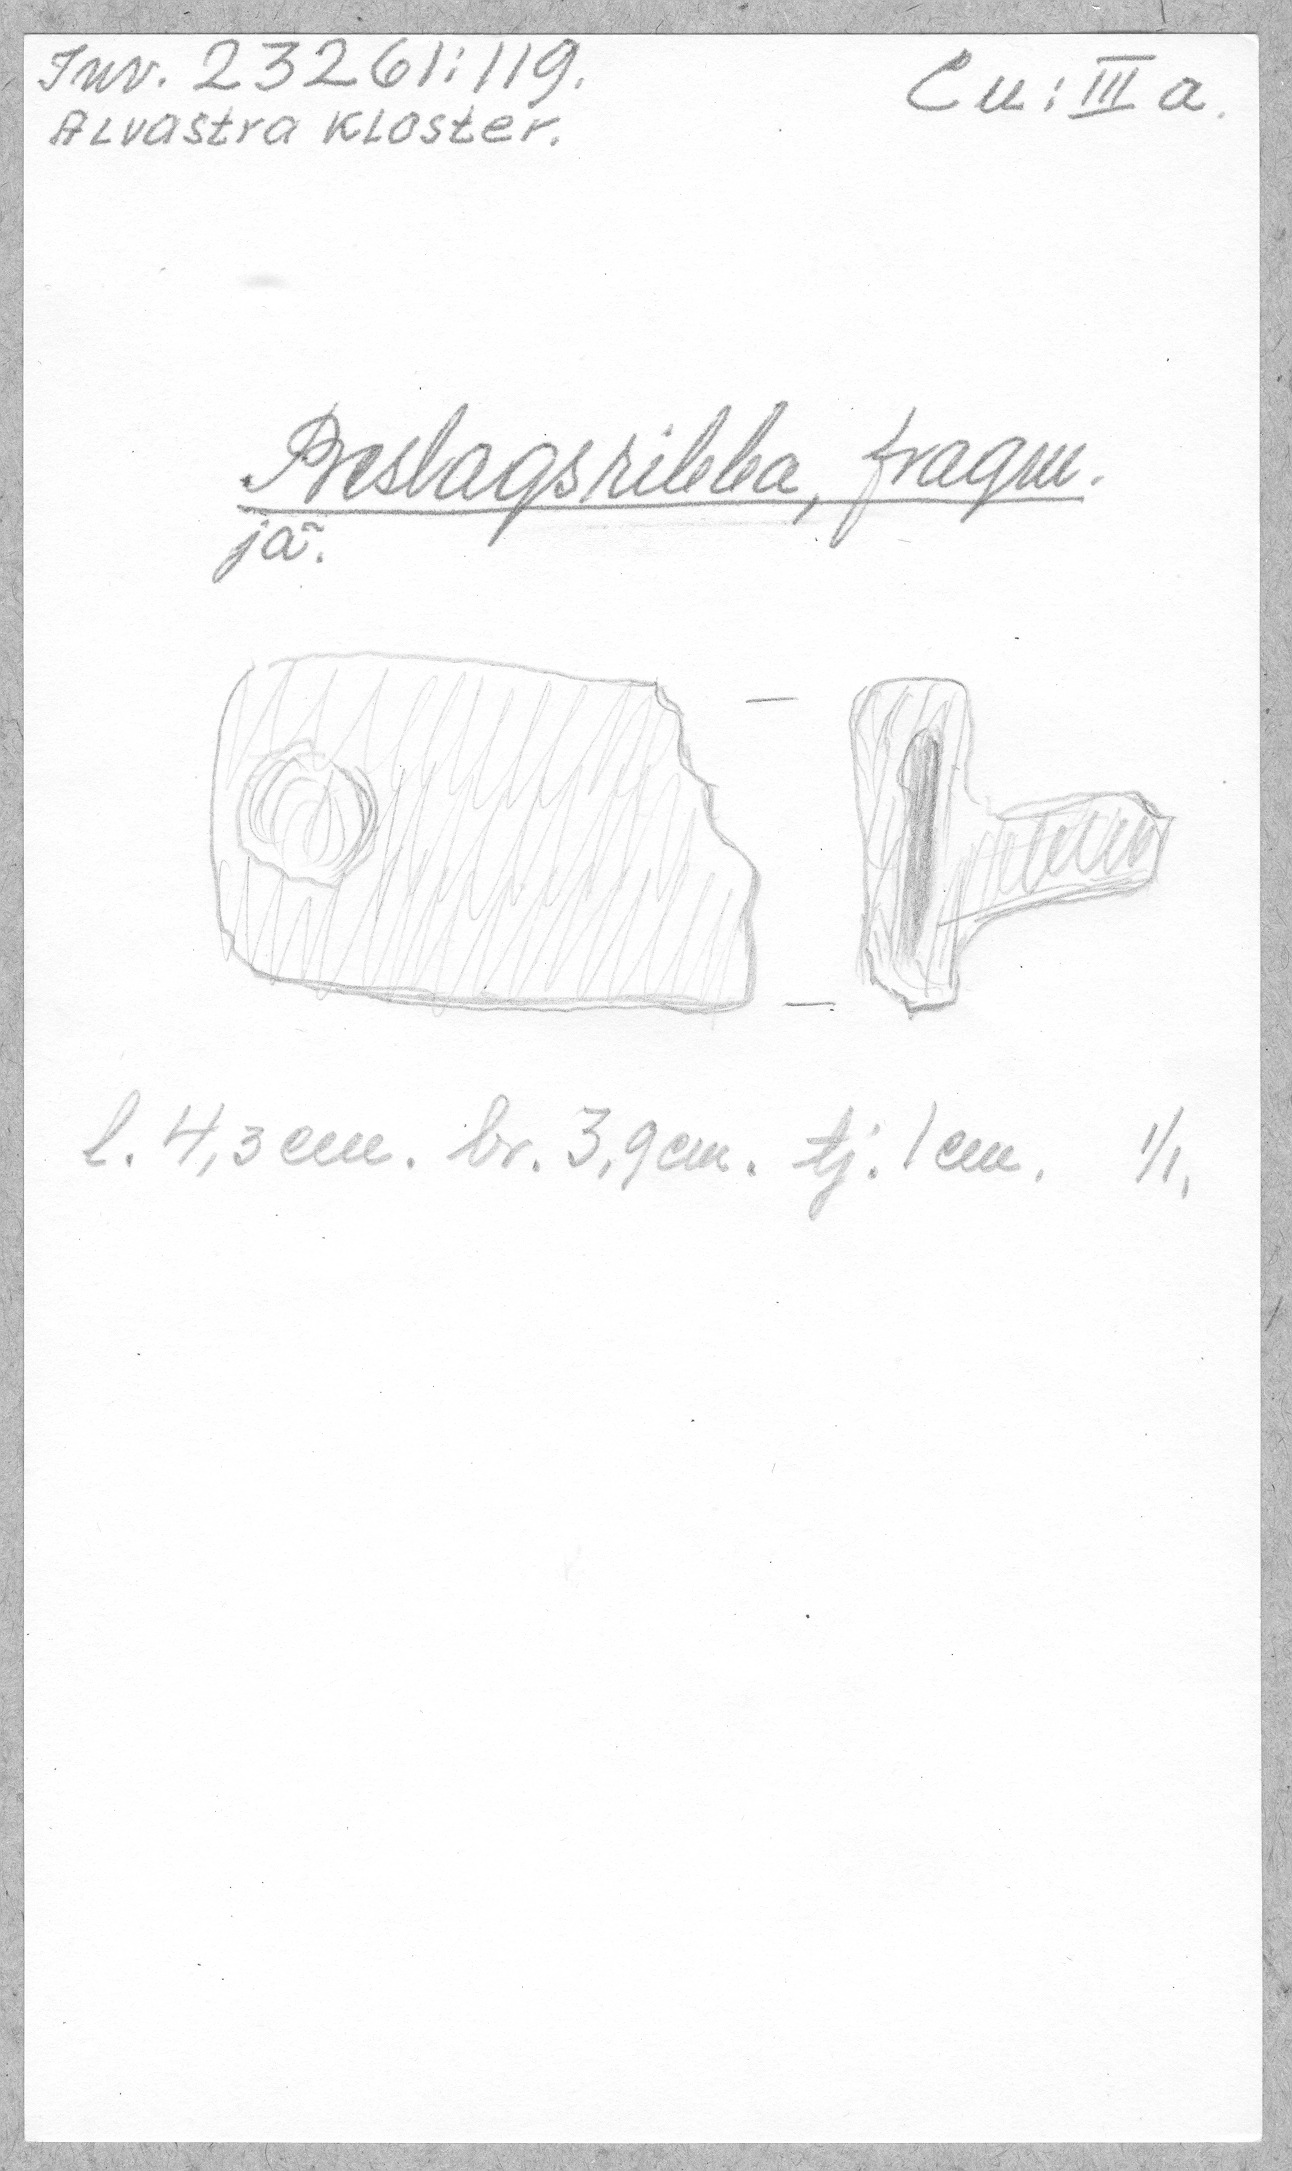 Inv. 23261:119.
Cu: III a.
Alvastra Kloster.
Beslagsribba, fragm.
jä.
l. 4,3 cm. br. 3,9 cm. tj. 1 cm. 1/1.